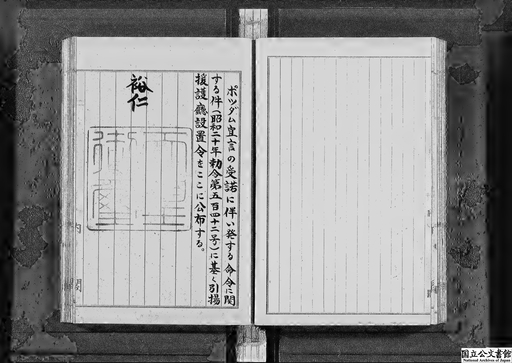 ポツダム宣言の受諾に伴い発する命令に関
する件(昭和二十年勅令第五百四十二号)に基く引揚
援護廳設置令をここに公布する。
裕仁
内閣
国立公文書館
National Archives of Japan